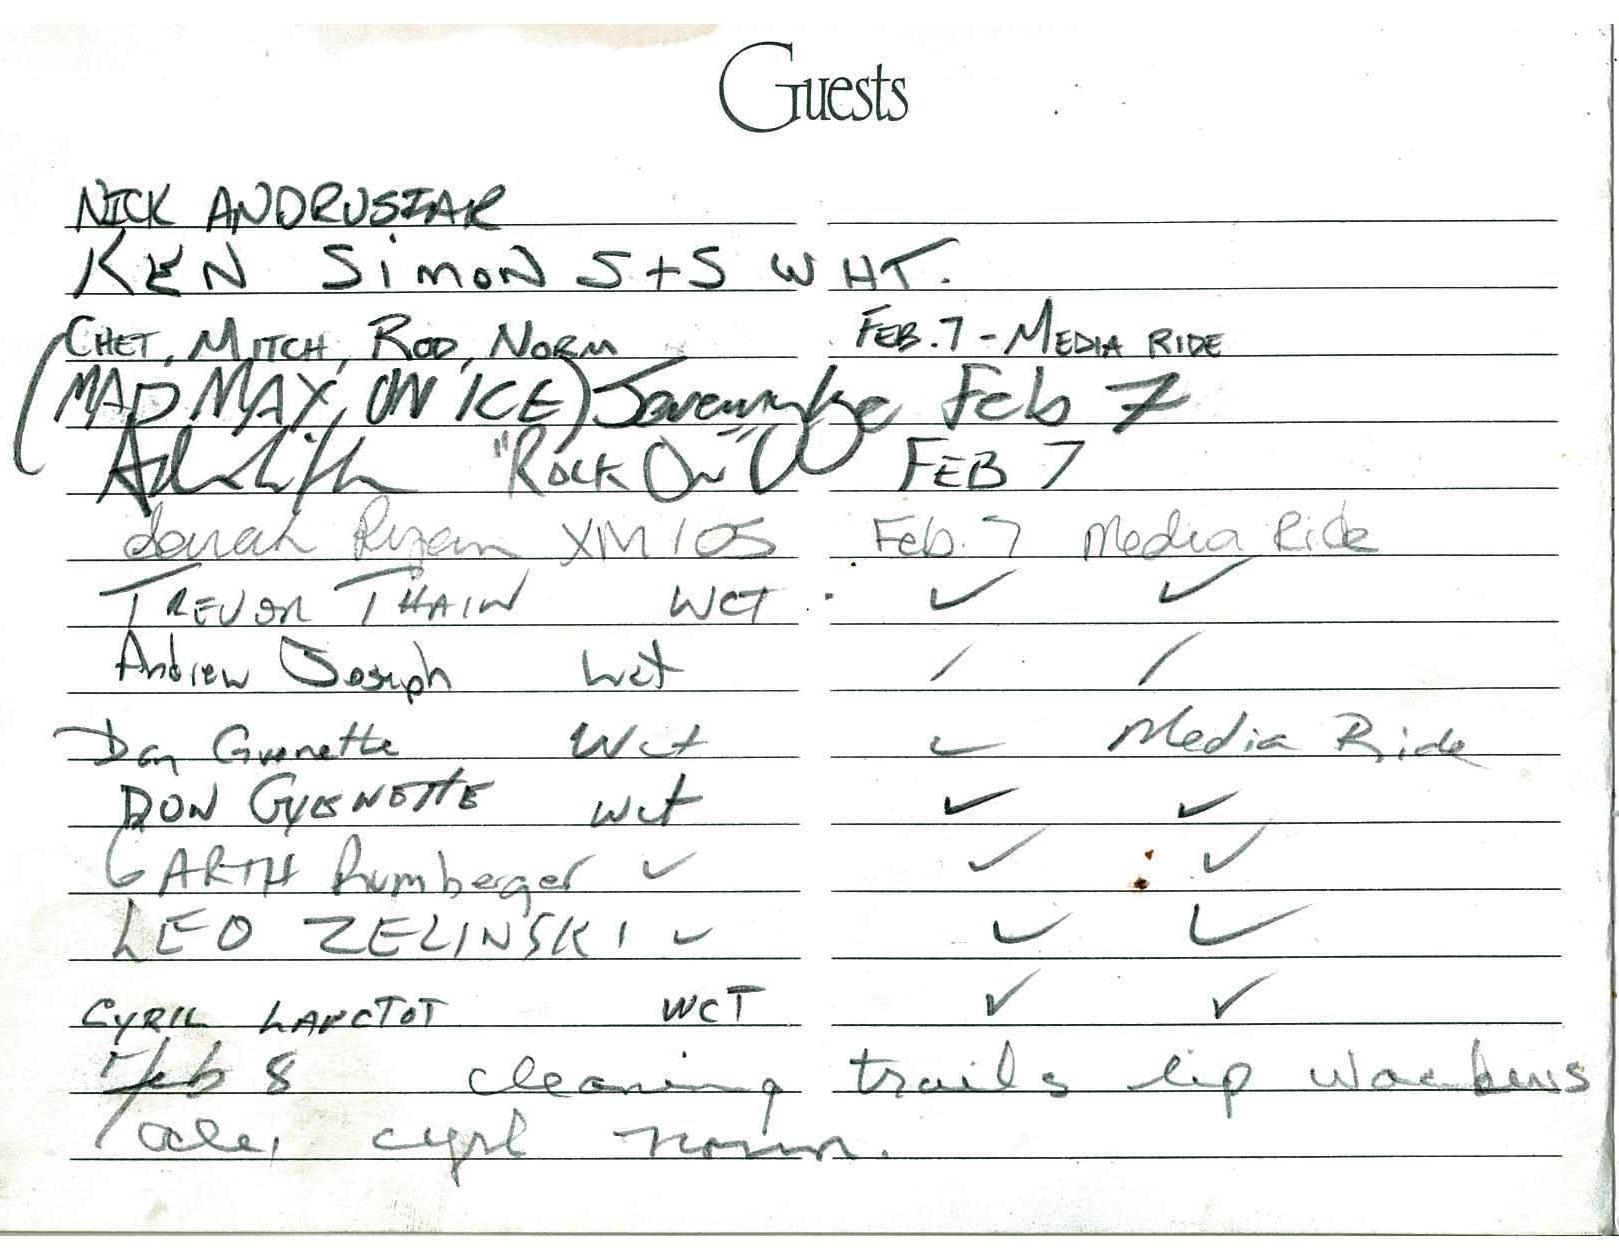 Guests
NICK ANDRUSIAR
KEN SiMON S+S WHT.
CHET, MITCH, ROD, NORM FEB. 7 - MEDIA RIDE
(MAD MAX ON ICE) Feb 7
"ROCK ON" FEB 7
Sarah Ryan XM105 Feb. 7 Media Ride
TREVOR THAIN WCT ✓ ✓
Andrew Joseph Wct / /
Dan Guenette Wct ✓ Media Ride
DON GUENETTE Wct ✓ ✓
GARTH Rumberger ✓ ✓ ✓
LEO ZELINSKI ✓ ✓ ✓
CYRIL LANCTOT WCT ✓ ✓
Feb 8 cleaning trails
cyrl norm.